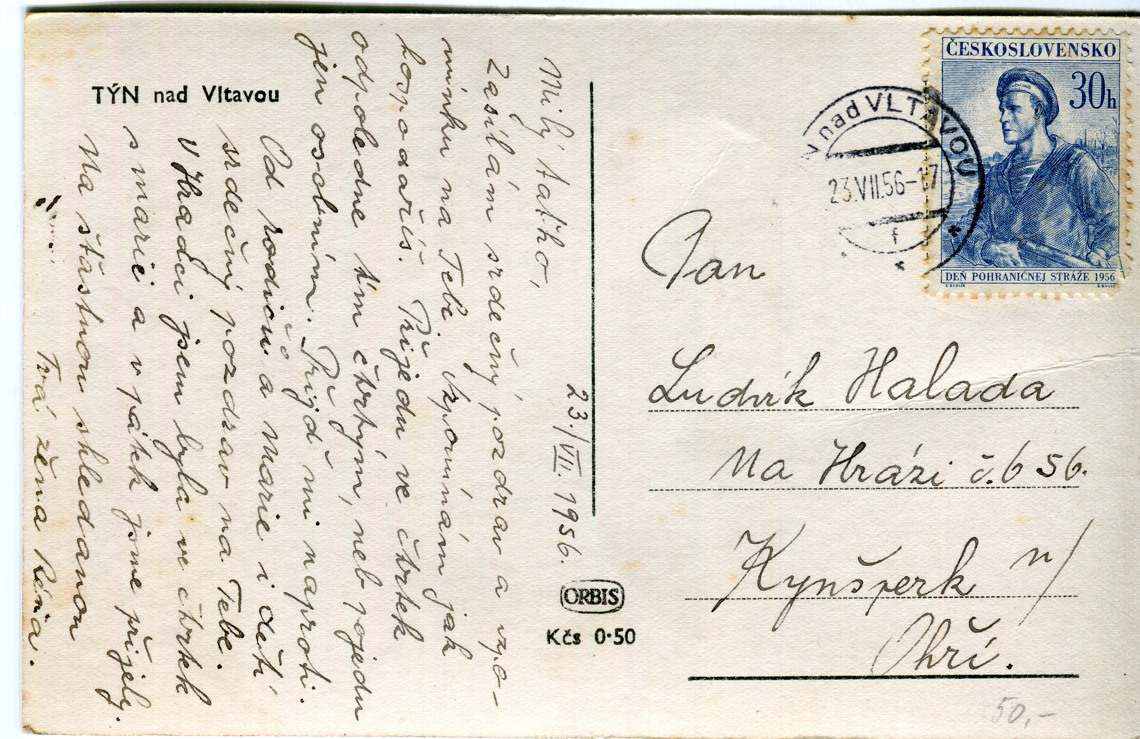 TÝN nad Vltavou
23./VII. 1956.
Milý tatího,
Zasílám srdečný pozdrav a vzpo-
mínku na Tebe. Vzpomínám jak
hospodaříš. Přijedu ve čtvrtek
odpoledne tím čtvrtým, neb pojedu
jen osobním. Přijď mi naproti.
Od rodičů a Marie i dětí
srdečný pozdrav na Tebe.
V Hradci jsem byla ve čtvrtek
s Marií a v pátek jsme přijely.
Na šťastnou shledanou
Tvá žena Réna.
ORBIS
Kčs 0·50
ČESKOSLOVENSKO
30h
DEŇ POHRANIČNEJ STRÁŽE 1956
nad VLTAVOU
23.VII.56-17
f
Pan
Ludvík Halada
Na Hrázi č. 656.
Kynšperk n/
Ohří.
50,-